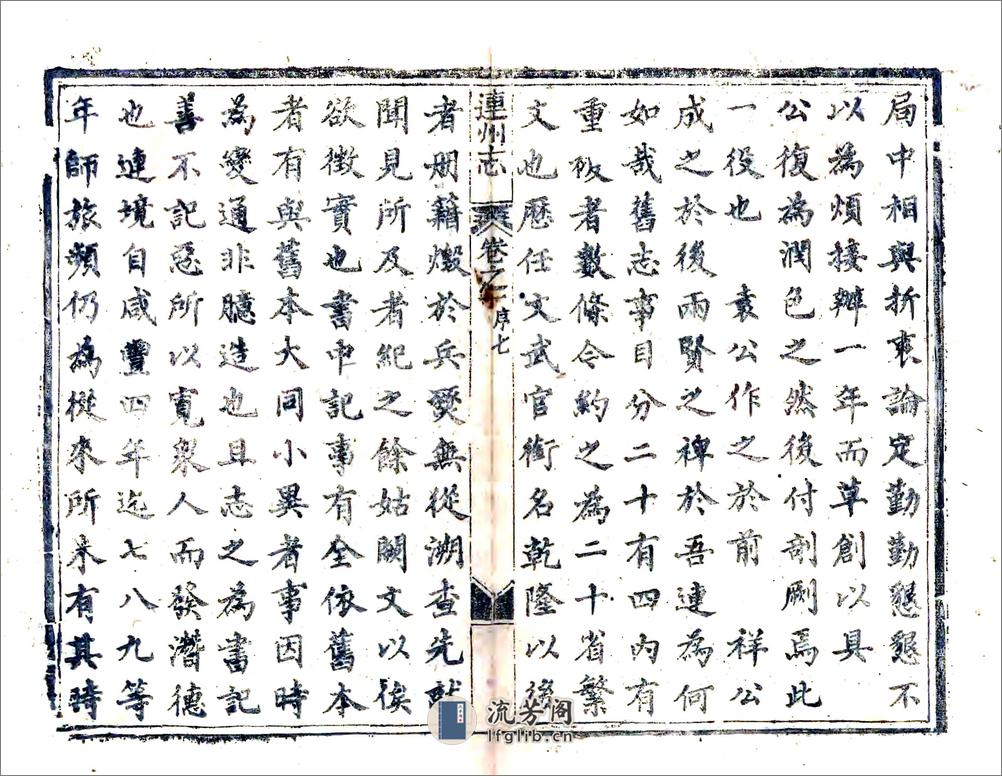 局中相與折衷論定勤勤懇懇不
以為煩接辦一年而草創以具
公復為潤色之然後付剞劂焉此
一役也 袁公作之於前 祥公
成之於後兩賢之裨於吾連為何
如哉舊志事目分二十有四內有
重祓者數條今約之為二十省繁
文也歷任文武官銜名乾隆以後
連州志 卷之 序 七
者册籍燬於兵燹無從溯查先就
聞見所及者紀之餘姑闕文以俟
欲徵實也書中記事有全依舊本
者有與舊本大同小異者事因時
為變通非臆造也且志之為書記
善不記惡所以寬衆人而發潛德
也連境自咸豐四年迄七八九等
年師旅頻仍為從來所未有其時
流芳阁
lfglib.cn